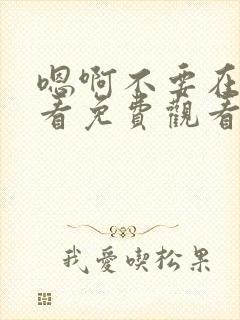 嗯啊不要在
看免費觀看
我愛喫松果